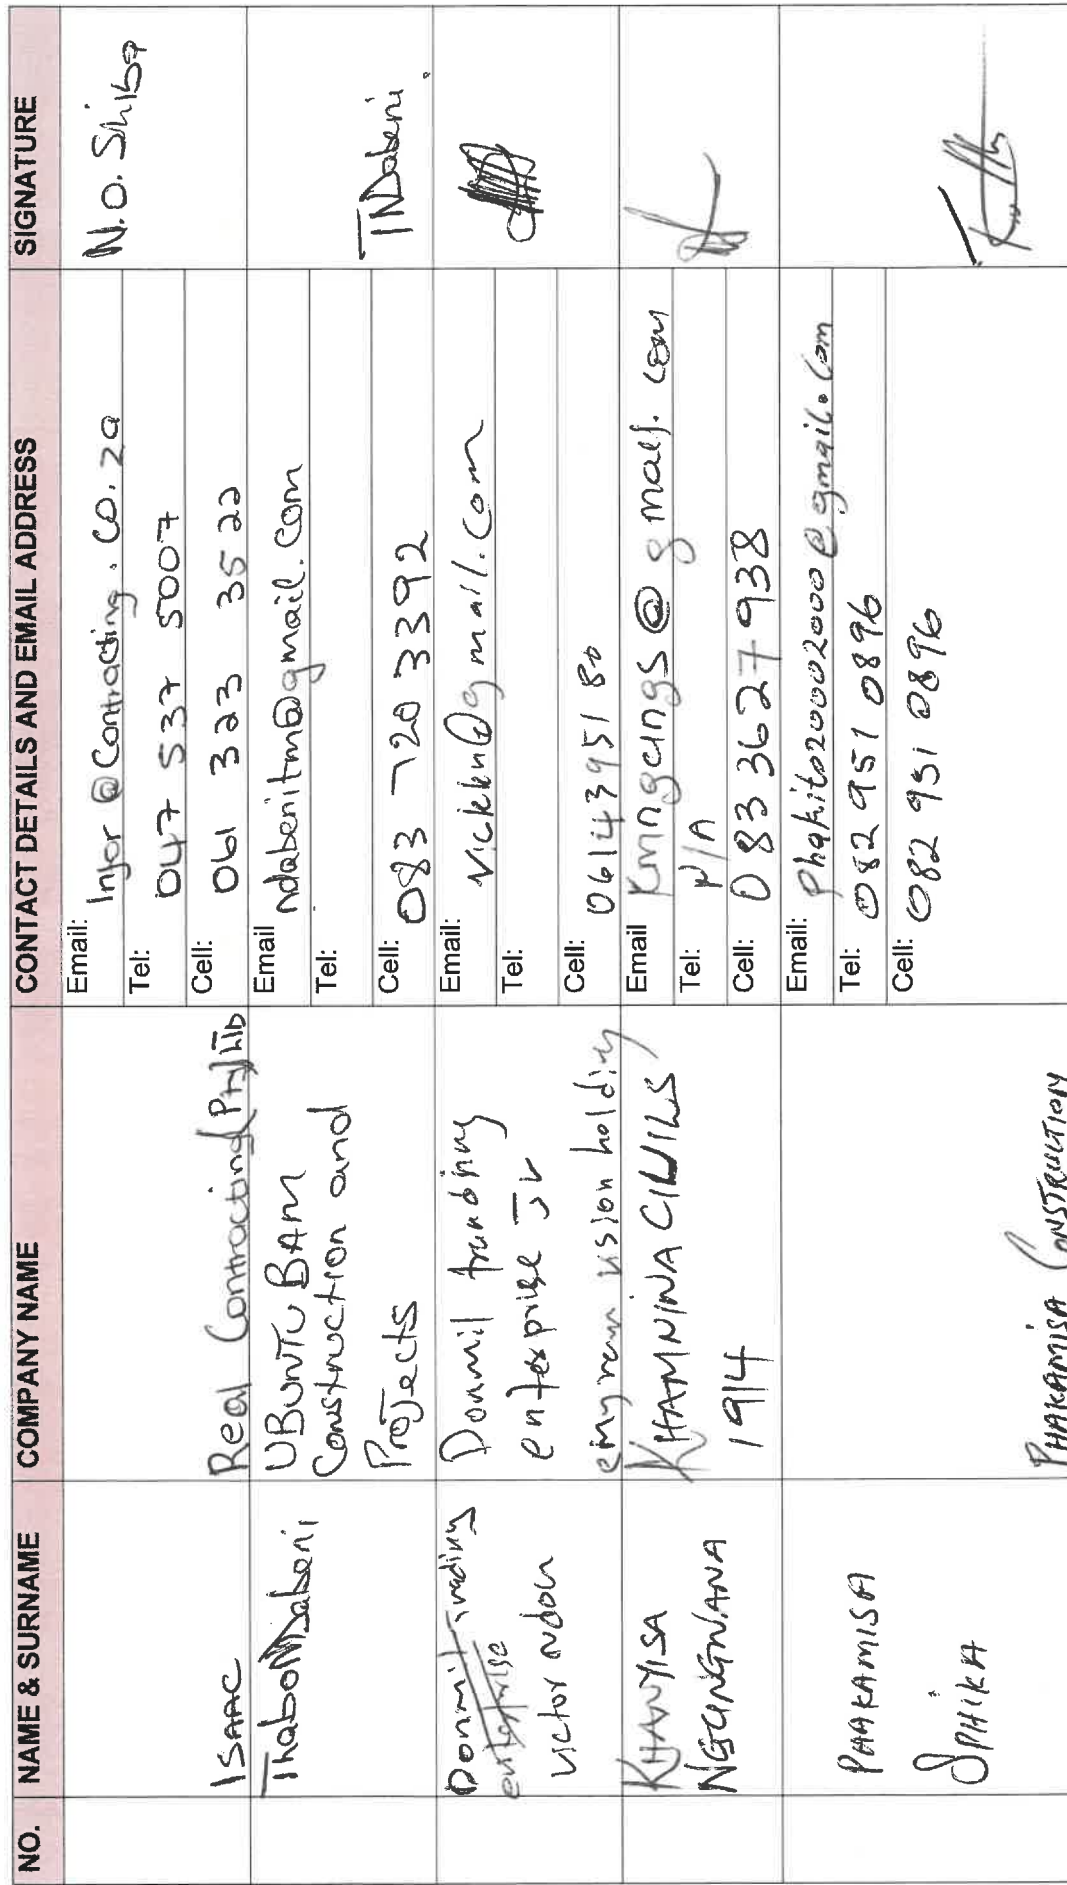 NO. NAME & SURNAME COMPANY NAME CONTACT DETAILS AND EMAIL ADDRESS SIGNATURE
ISAAC
Real Contracting Pty Ltd
Email: Infor@Contracting.co.za
Tel: 047 537 5007
Cell: 061 323 3522
N.O. Shiba
Thabo Ndabeni
UBUNTU BAM
Construction and
Projects
Email ndabenitm@gmail.com
Tel:
Cell: 083 720 3392
TNDabeni
Donmil trading
enterprise
victor ndou
Donmil trading
enterprise JV
vision holding
Email: vickkn@gmail.com
Tel:
Cell: 0614395180
KHANYISA
NGCINGWANA
KHAMNINA CIVILS
1914
Email kmngcings@gmail.com
Tel: N/A
Cell: 083 3627 938
PHAKAMISA
SPHIKA
PHAKAMISA CONSTRUCTION
Email: Phakito20002000@gmail.com
Tel: 082 951 0896
Cell: 082 951 0896